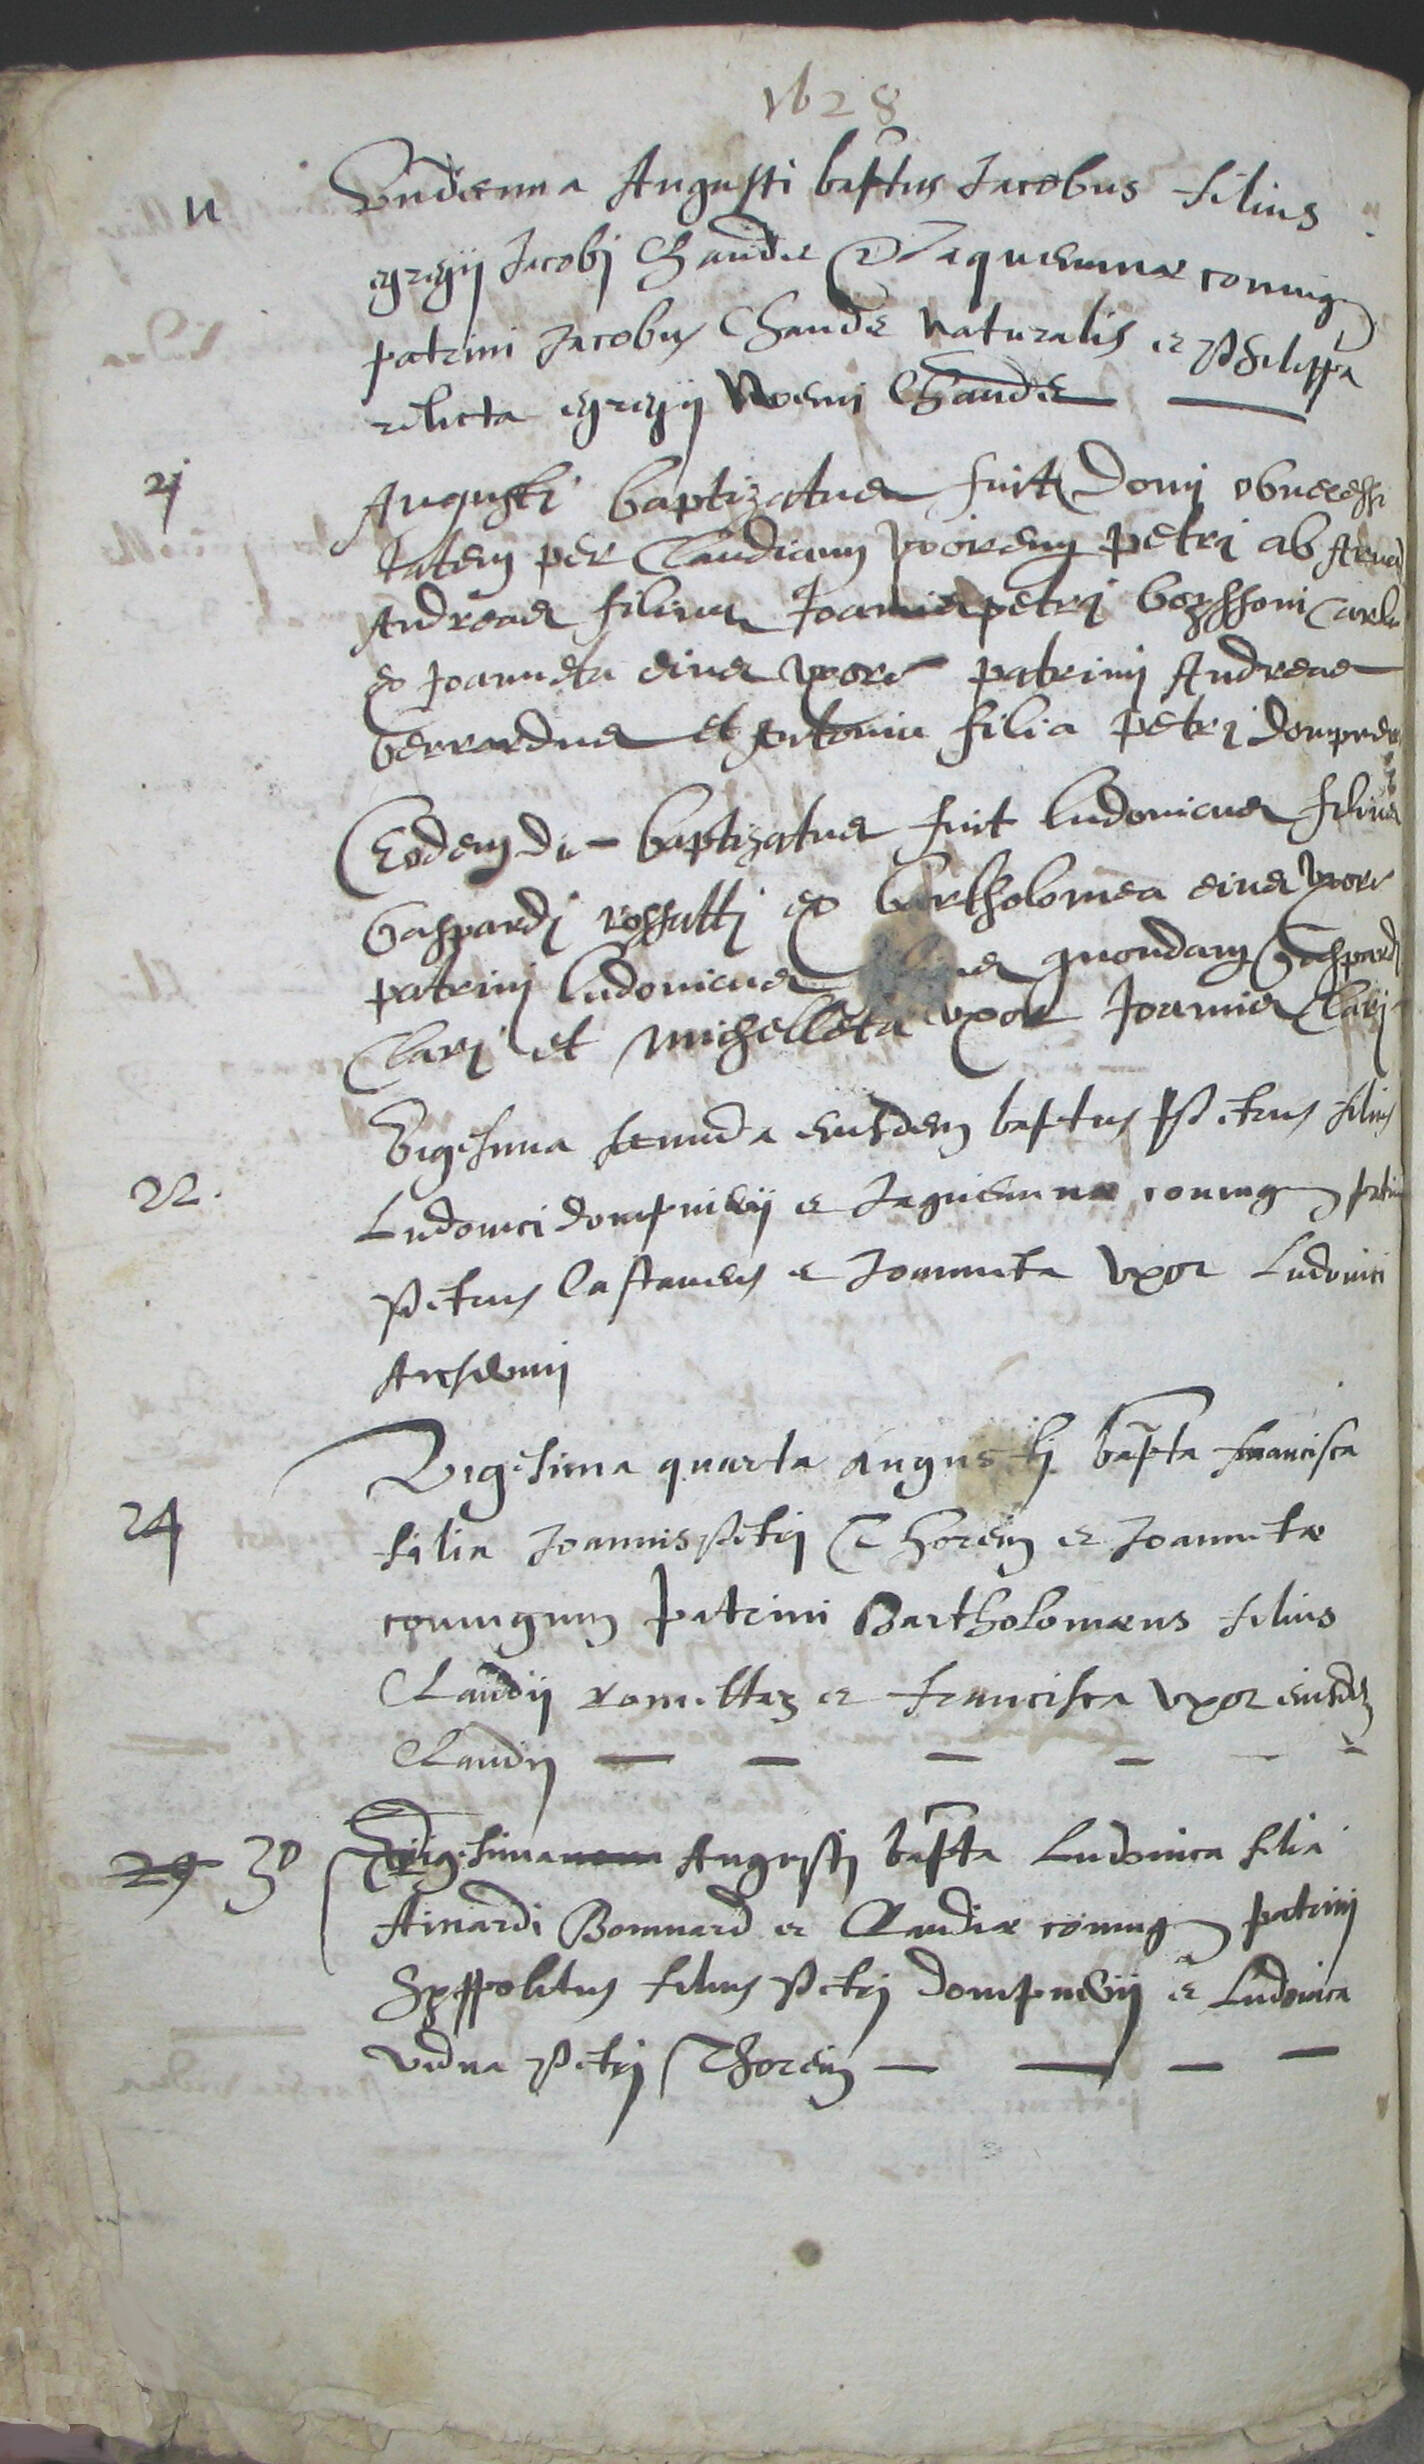 1628
11 Undecima Augusti baptus Jacobus filius
egregij Jacobj Chaude & Jaquemmæ coniug
patrini Jacobus Chaude naturalis et Philippa
relicta egregij Noemj Chaude
21 Augusti baptizatus fuit Domj obnecessi
tatem per Claudiam uxorem petrj ab
Andreas filius Joannis petrj
ex Joanneta eius uxore patrinj Andreas
berrardus et Antonia filia petrj
Eodem die baptizatus fuit ludovicus filius
Gaspardj rossattj ex bartholomea eius uxore
patrinj ludovicus filius quondam Gaspardj
Clarj et michelleta uxor Joannis Clarj
22. Vigesima secunda eiusdem baptus Petrus filius
Ludovici dompnierij et Jaquemmæ coniug patrini
Petrus Castaneus et Joanneta Uxor Ludovici
Anselmij
24 Vigesima quarta augustj bapta francisca
filia Joannis Petrj Thorein et Joannetæ
coniugum patrini Bartholomæus filius
Claudij romettaz et francisca Uxor eiusdem
Claudij
29 30 Trigesima nona Augustj bapta Ludovica filia
Ainardi Bonnard et Claudiæ coniug patrinj
Hyppolitus filius Petrj dompnierij et Ludovica
vidua Petrj Thorein